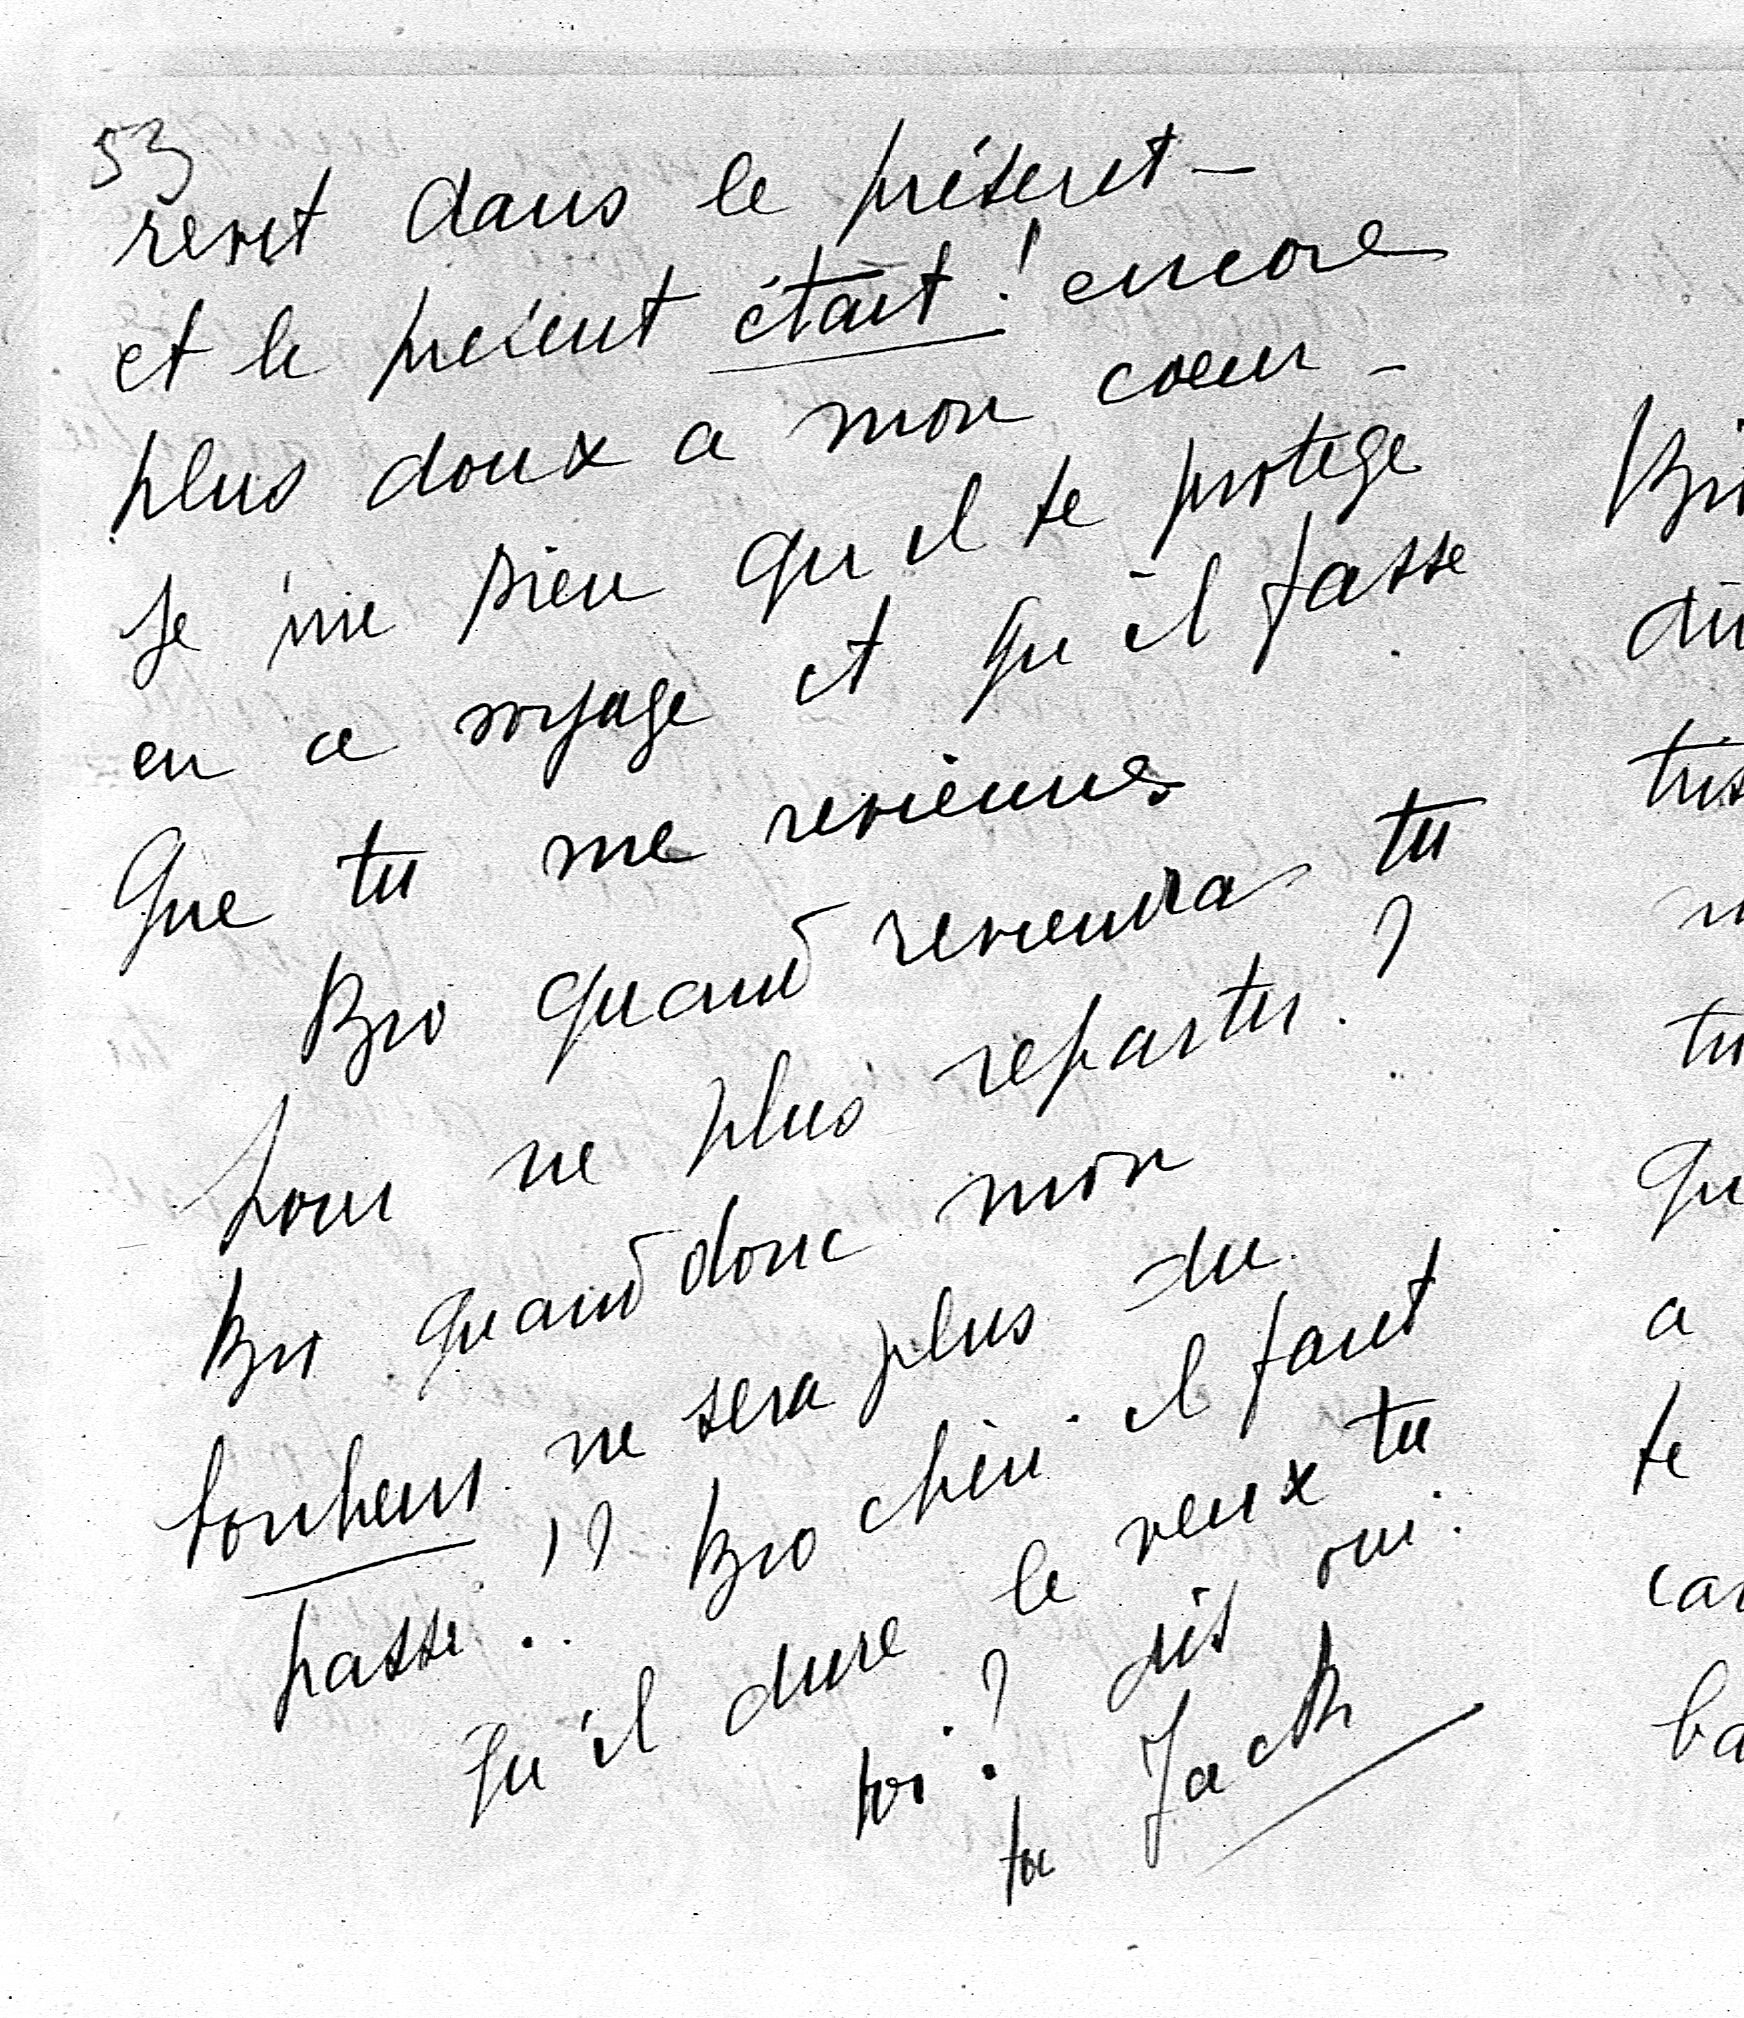 53
revit dans le présent -
et le present était ! encore
plus doux a mon coeur -
Je prie Dieu qu il te protege
en ce voyage et qu'il fasse
que tu me reviennes
Bro quand reviendra tu
pour ne plus repartir ?
Bro quand donc mon
bonheur ne sera plus du
passé .. !? Bro cheri . il faut
qu'il dure le veux tu
toi ? dit oui .
ta Jack
Bro
a
te